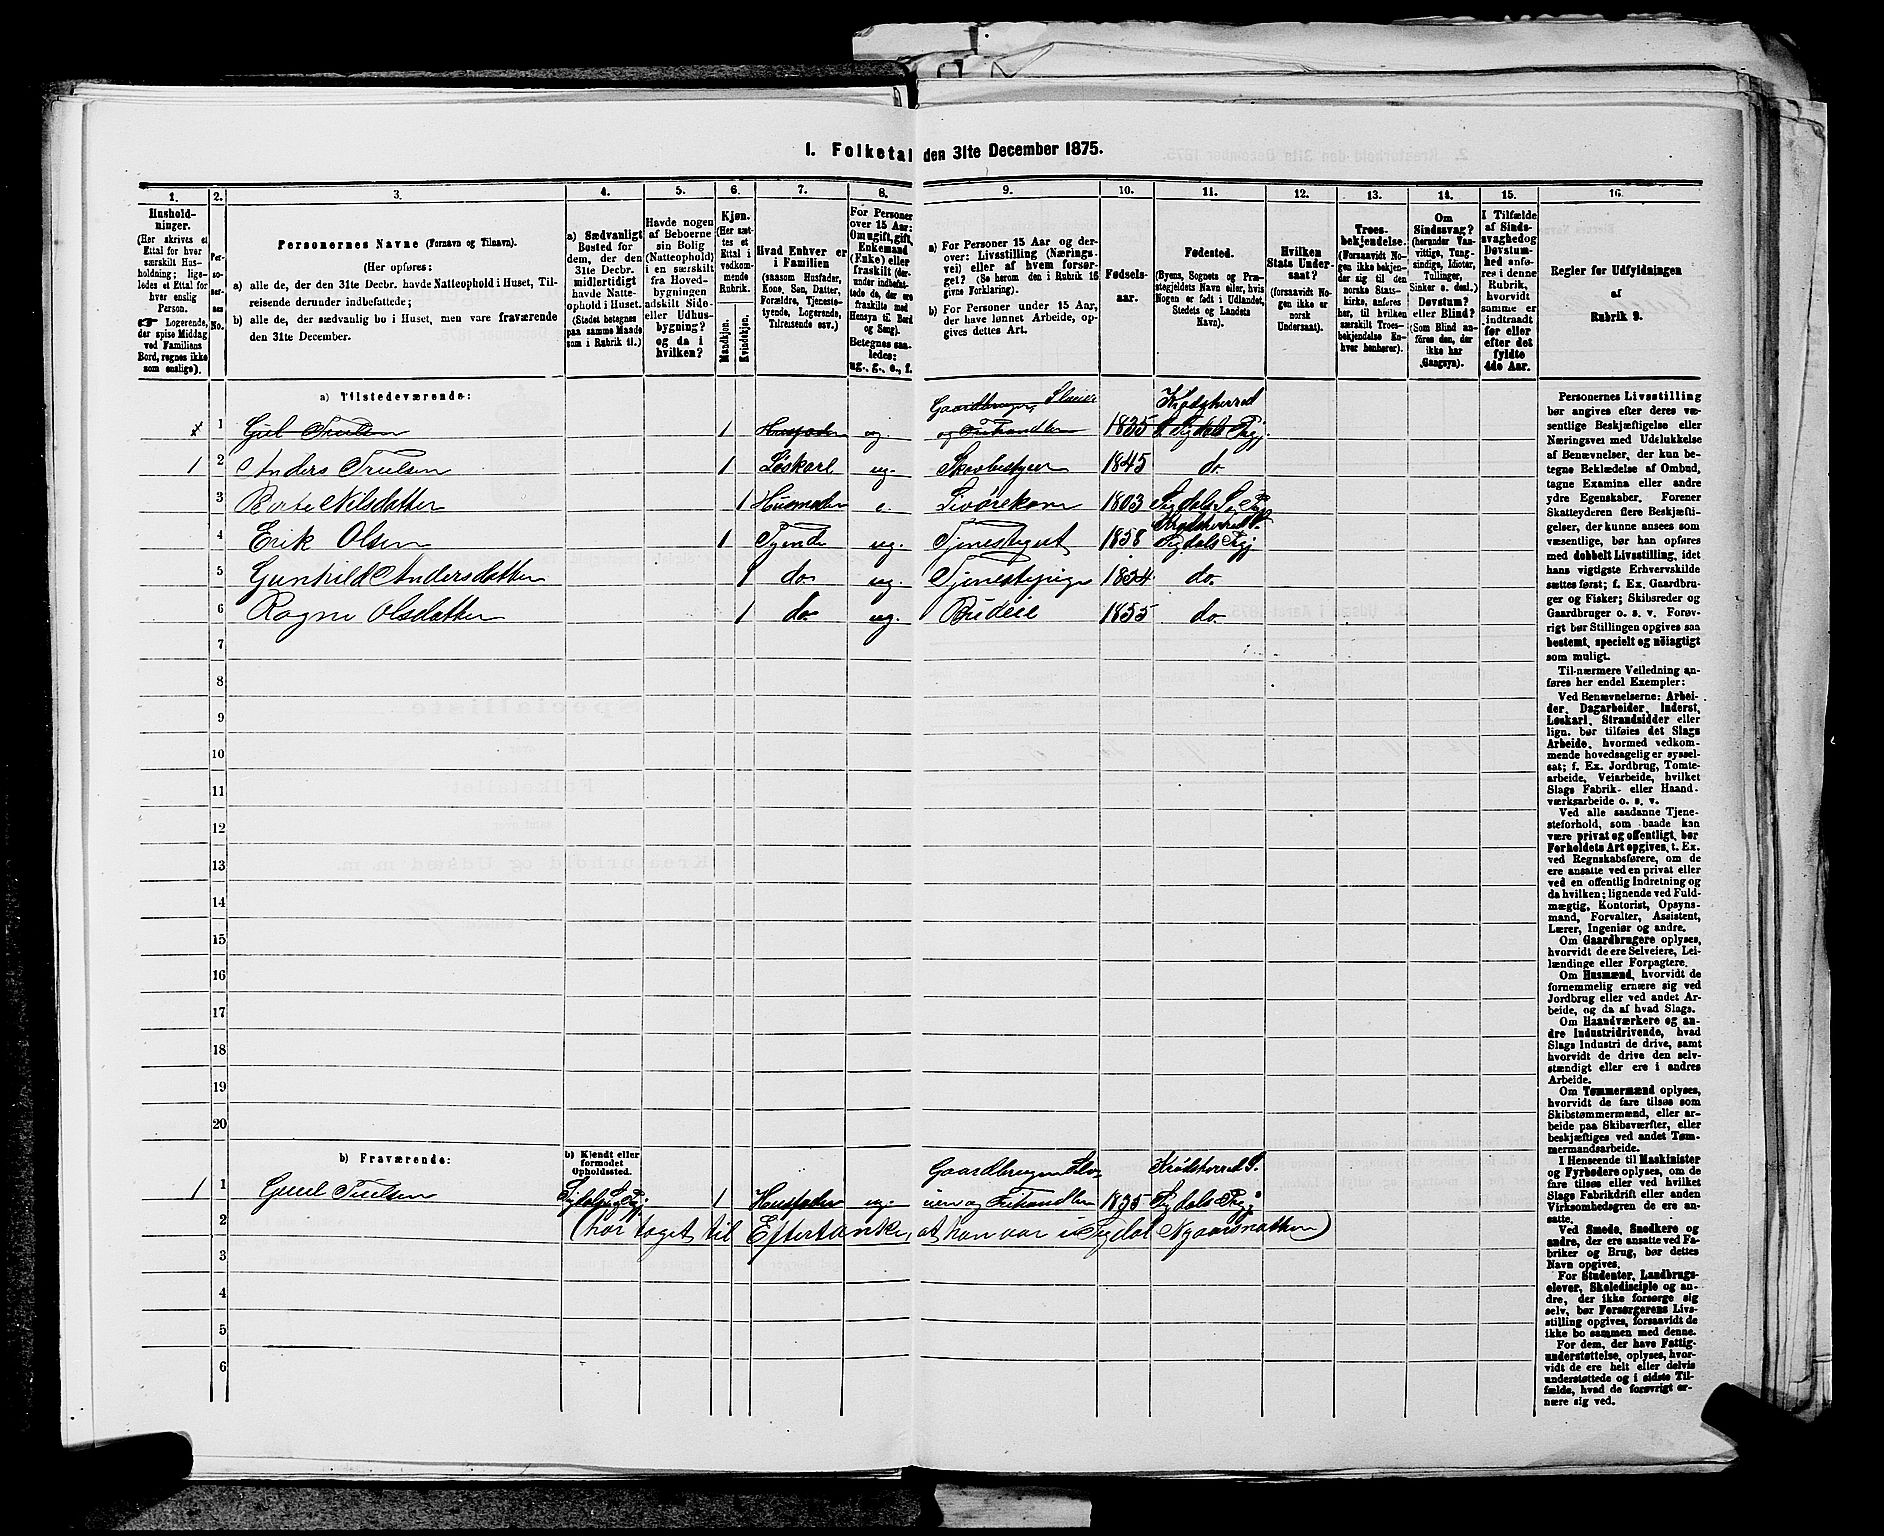 1. Folketal den 31te December 1875.
1.
2.
3.
4.
5.
6.
7.
8.
9.
10.
11.
12.
13.
14.
15.
16.
Hushold-
ninger.
(Her skrives et
Ettal for hver
særskilt Hus-
holdning; lige-
ledes et Ettal for
hver enslig
Person.
☞ Logerende,
der spise Middag
ved Familiens
Bord, regnes ikke
som enslige).
Per-
so-
ner-
nes
No.
Personernes Navne (Fornavn og Tilnavn).
(Her opføres:
a) alle de, der den 31te Decbr. havde Natteophold i Huset, Til-
reisende derunder indbefattede;
b) alle de, der sædvanlig bo i Huset, men vare fraværende
den 31te December.
a) Sædvanligt
Bosted for
dem, der den
31te Decbr.
midlertidigt
havde Natte-
ophold i Huset.
(Stedet betegnes
paa samme Maade
som i Rubrik 11.)
Havde nogen
af Beboerne
sin Bolig
(Natteophold)
i en særskilt
fra Hoved-
bygningen
adskilt Side-
eller Udhus-
bygning?
og da i
hvilken?
Kjøn.
(Her sæt-
tes et
Ettal i
vedkom-
mende
Rubrik.
Mandkjøn.
Kvindekjøn.
Hvad Enhver er
i Familien
(saasom Husfader,
Kone, Søn, Datter,
Forældre, Tjeneste-
tyende, Logerende,
Tilreisende osv.)
For Personer
over 15 Aar:
Om ugift, gift,
Enkemand
(Enke) eller
fraskilt (der-
under indbefat-
tede de, der ere
fraskilte med
Hensyn til Bord
og Seng).
Betegnes saa-
ledes:
ug., g., e., f.
a) For Personer 15 Aar og der-
over: Livsstilling (Nærings-
vei) eller af hvem forsør-
get? (Se herom den i Rubrik 16
givne Forklaring).
b) For Personer under 15 Aar,
der have lønnet Arbeide, op-
gives dettes Art.
Fødsels-
aar.
Fødested.
(Byens, Sognets og Præ-
stegjeldets Navn eller, hvis
Nogen er født i Udlandet,
Stedets og Landets
Navn).
Hvilken
Stats Under-
saat?
(forsaavidt No-
gen ikke er
norsk
Undersaat).
Troes-
bekjendelse.
(Forsaavidt No-
gen ikke bekjen-
der sig til den
norske Stats-
kirke, anføres
her, til hvilken
særskilt Troes-
bekjendelse En-
hver henhører).
Om
Sindssvag?
(herunder Van-
vittige, Tung-
sindige, Idioter,
Tullinger,
Sinker o. desl.)
Døvstum?
eller Blind?
(Som Blind an-
føres den, der
ikke har
Gangsyn).
I Tilfælde
af Sinds-
svaghed og
Døvstum-
hed anfø-
res i denne
Rubrik,
hvorvidt
samme er
indtraadt
før eller
efter det
fyldte
4de Aar.
Regler for Udfyldningen
af
Rubrik 9.
a) Tilstedeværende:
x 1 Gul Trulsen 1 Husfader ug. Gaardbruger, og Frihandler 1835 Krødsherred
1 2 Anders Truelsen 1 Løskarl ug. Skovbestyrer 1845 do
3 Berte Nilsdatter 1 Husmoder e. 1803 Sigdals
4 Erik Olsen 1 Tyende ug. Tjenestegut 1858 Krødsherred Sigdals Prgj
5 Gunhild Andersdatter 1 do ug. Tjenestepige 1854 do.
6 Ragne Olsdatter 1 do. ug. Budeie 1855 do
7
8
9
10
11
12
13
14
15
16
17
18
19
20
b) Fraværende:
b) Kjendt eller
formodet
Opholdssted.
1 1 Truelsen Sigdals 1 Husfader ug. Gaardbruger og Frihandler 1835 Krødsherred S. Sigdals Prgj
2 (har taget til Eftertanke, at han var i Sigdal Nyaarsnatten)
3
4
5
6
Personernes Livsstilling
bør angives efter deres væ-
sentlige Beskjæftigelse eller
Næringsvei med Udelukkelse
af Benævnelser, der kun be-
tegne Beklædelse af Ombud,
tagne Examina eller andre
ydre Egenskaber. Forener
Skatteyderen flere Beskjæfti-
gelser, der kunne ansees som
væsentlige, bør han opføres
med dobbelt Livsstilling, idet
hans vigtigste Erhvervskilde
sættes først; f. Ex. Gaardbru-
ger og Fisker; Skibsreder og
Gaardbruger o. s. v. Forøv-
rigt bør Stillingen opgives saa
bestemt, specielt og nøiagtigt
som muligt.
Til nærmere Veiledning an-
føres her endel Exempler:
Ved Benævnelserne: Arbei-
der, Dagarbeider, Inderst,
Løskarl, Strandsidder eller
lign. bør tilføies det Slags
Arbeide, hvormed vedkom-
mende hovedsagelig er syssel-
sat; f. Ex. Jordbrug, Tomte-
arbeide, Veiarbeide, hvilket
Slags Fabrik- eller Haand-
værksarbeide o. s. v.
Ved alle saadanne Tjene-
steforhold, som baade kan
være privat og offentligt, bør
Forholdets Art opgives, t. Ex.
ved Regnskabsførere, om de
ere ansatte ved en privat eller
ved en offentlig Indretning og
da hvilken; lignende ved Fuld-
mægtig, Kontorist, Opsyns-
mand, Forvalter, Assistent,
Lærer, Ingeniør og andre.
Om Gaardbrugere oplyses,
hvorvidt de ere Selveiere, Lei-
lændinge eller Forpagtere.
Om Husmænd, hvorvidt de
fornemmelig ernære sig ved
Jordbrug eller ved andet Ar-
beide, og da af hvad Slags.
Om Haandværkere og an-
dre Industridrivende, hvad
Slags Industri de drive, samt
hvorvidt de drive den selv-
stændigt eller ere i andres
Arbeide.
Om Tømmermænd oplyses,
hvorvidt de fare tilsøs som
Skibstømmermænd, eller ar-
beide paa Skibsværfter, eller
beskjæftiges ved andet Tøm-
mermandsarbeide.
I Henseende til Maskinister
og Fyrbødere oplyses, om de
fare tilsøs eller ved hvilket
Slags Fabrikdrift eller anden
Virksomhedsgren de ere an-
satte.
Ved Smede, Snedkere og
andre, der ere ansatte ved Fa-
briker og Brug, bør dettes
Navn opgives.
For Studenter, Landbrugs-
elever, Skoledisciple og an-
dre, der ikke forsørge sig
selv, bør Forsørgerens Livs-
stilling opgives, forsaavidt de
ikke bo sammen med denne.
For dem, der have Fattig-
understøttelse, oplyses, hvor-
vidt de ere helt eller delvis
understøttede og i sidste Til-
fælde, hvad de forøvrigt er-
nære sig ved.